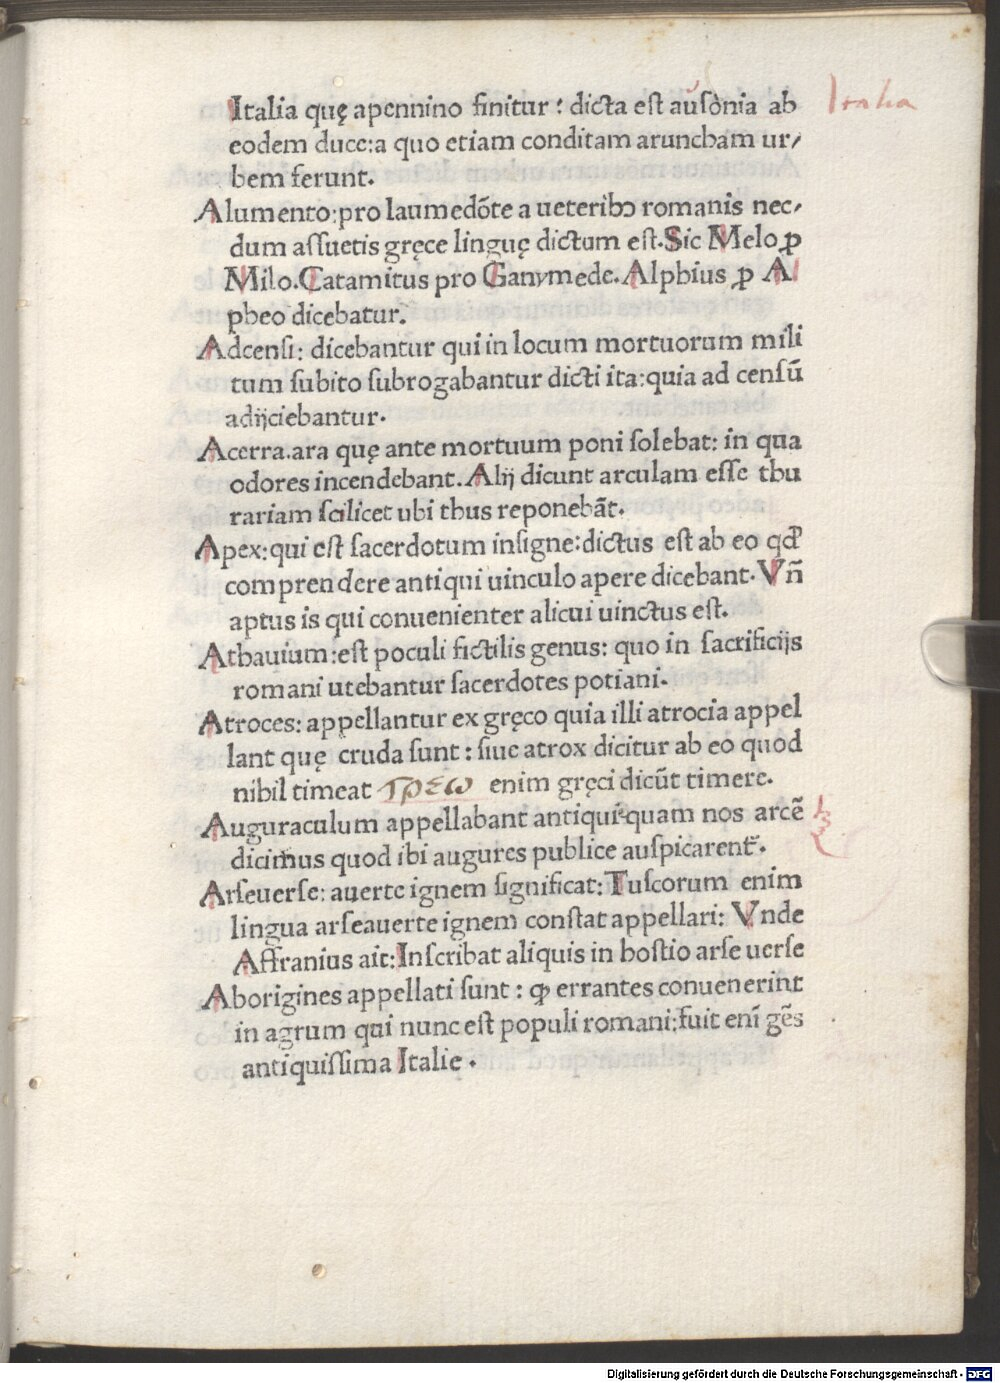 Italia quę apennino finitur : dicta est ausonia ab
Italia
eodem duce:a quo etiam conditam aruncham ur/
bem ferunt.
Alumento:pro laumedōte a ueteribꝰ romanis nec/
dum assuetis gręce linguę dictum est.Sic Melo ꝓ
Milo.Catamitus pro Ganymede.Alphius ꝓ Al
pheo dicebatur.
Adcensi: dicebantur qui in locum mortuorum mili
tum subito subrogabantur dicti ita:quia ad censū
adijciebantur.
Acerra.ara quę ante mortuum poni solebat: in qua
odores incendebant.Alij dicunt arculam esse thu
rariam scilicet ubi thus reponebāt.
Apex:qui est sacerdotum insigne:dictus est ab eo qđ
comprendere antiqui uinculo apere dicebant.Vn̄
aptus is qui conuenienter alicui uinctus est.
Athauium:est poculi fictilis genus: quo in sacrificijs
romani utebantur sacerdotes potiani.
Atroces: appellantur ex gręco quia illi atrocia appel
lant quę cruda sunt : siue atrox dicitur ab eo quod
nihil timeat τρεω enim gręci dicūt timere.
Auguraculum appellabant antiqui:quam nos arcē
dicimus quod ibi augures publice auspicarent̃.
Arseuerse: auerte ignem significat:Tuscorum enim
lingua arseauerte ignem constat appellari: Vnde
Affranius ait:Inscribat aliquis in hostio arse uerse
Aborigines appellati sunt : ꝙ errantes conuenerint
in agrum qui nunc est populi romani:fuit enī gēs
antiquissima Italie .
Digitalisierung gefördert durch die Deutsche Forschungsgemeinschaft - DFG